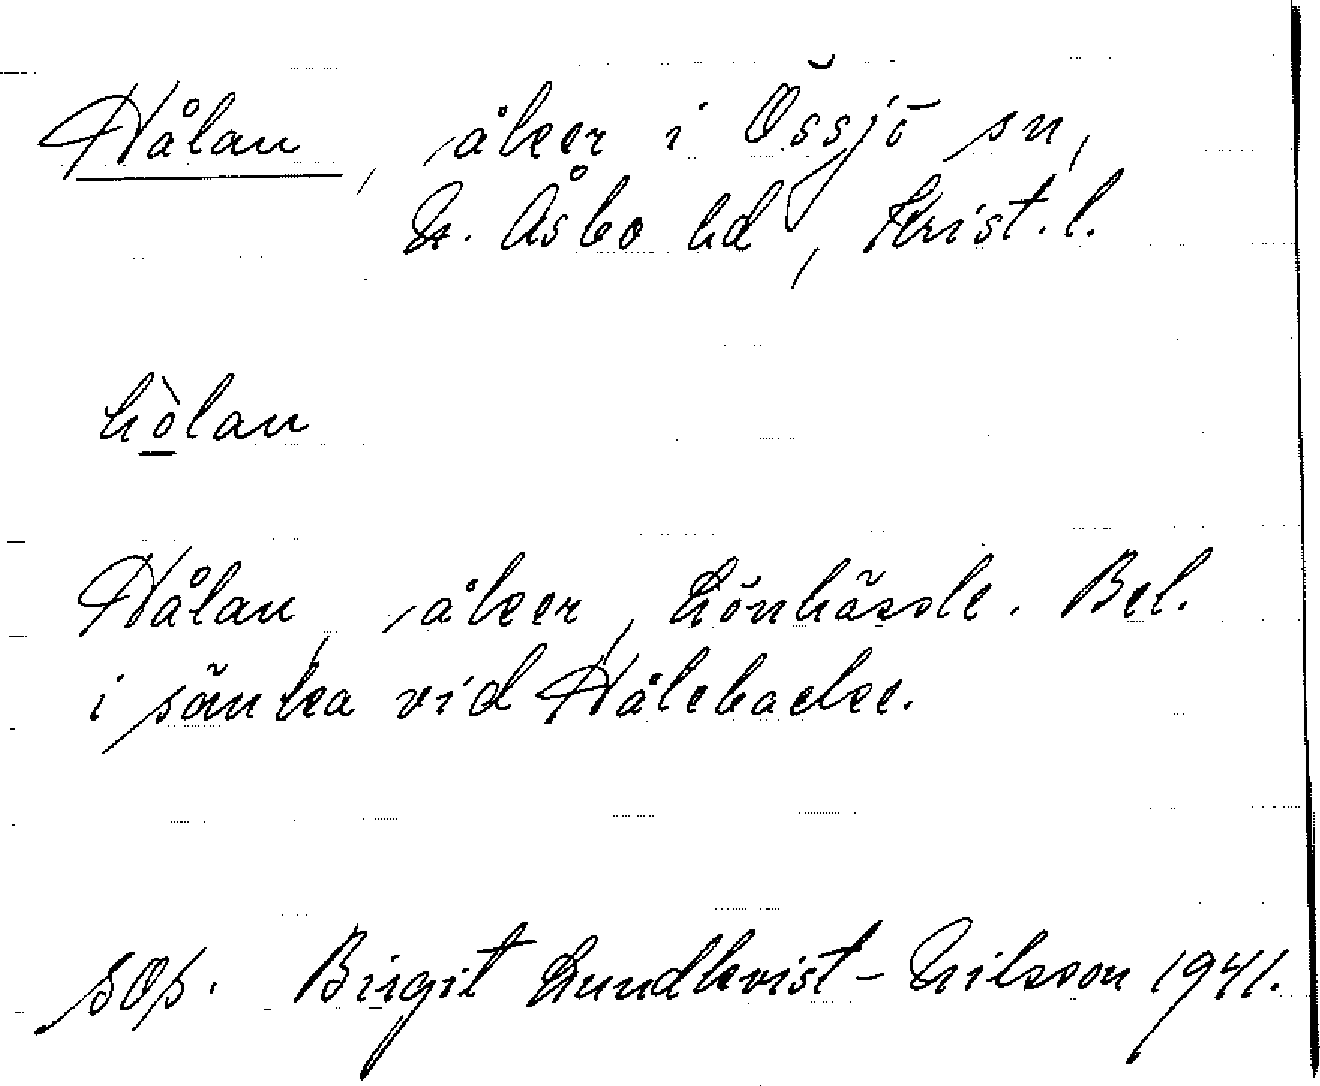 Hålan, åker i Össjö sn,
N. Åsbo hd, Krist. l.
hòlan
Hålan, åker, Lönhässle. Bel.
i sänka vid Hålebacke.
SOp. Birgit Lundkvist-Nilsson 1941.